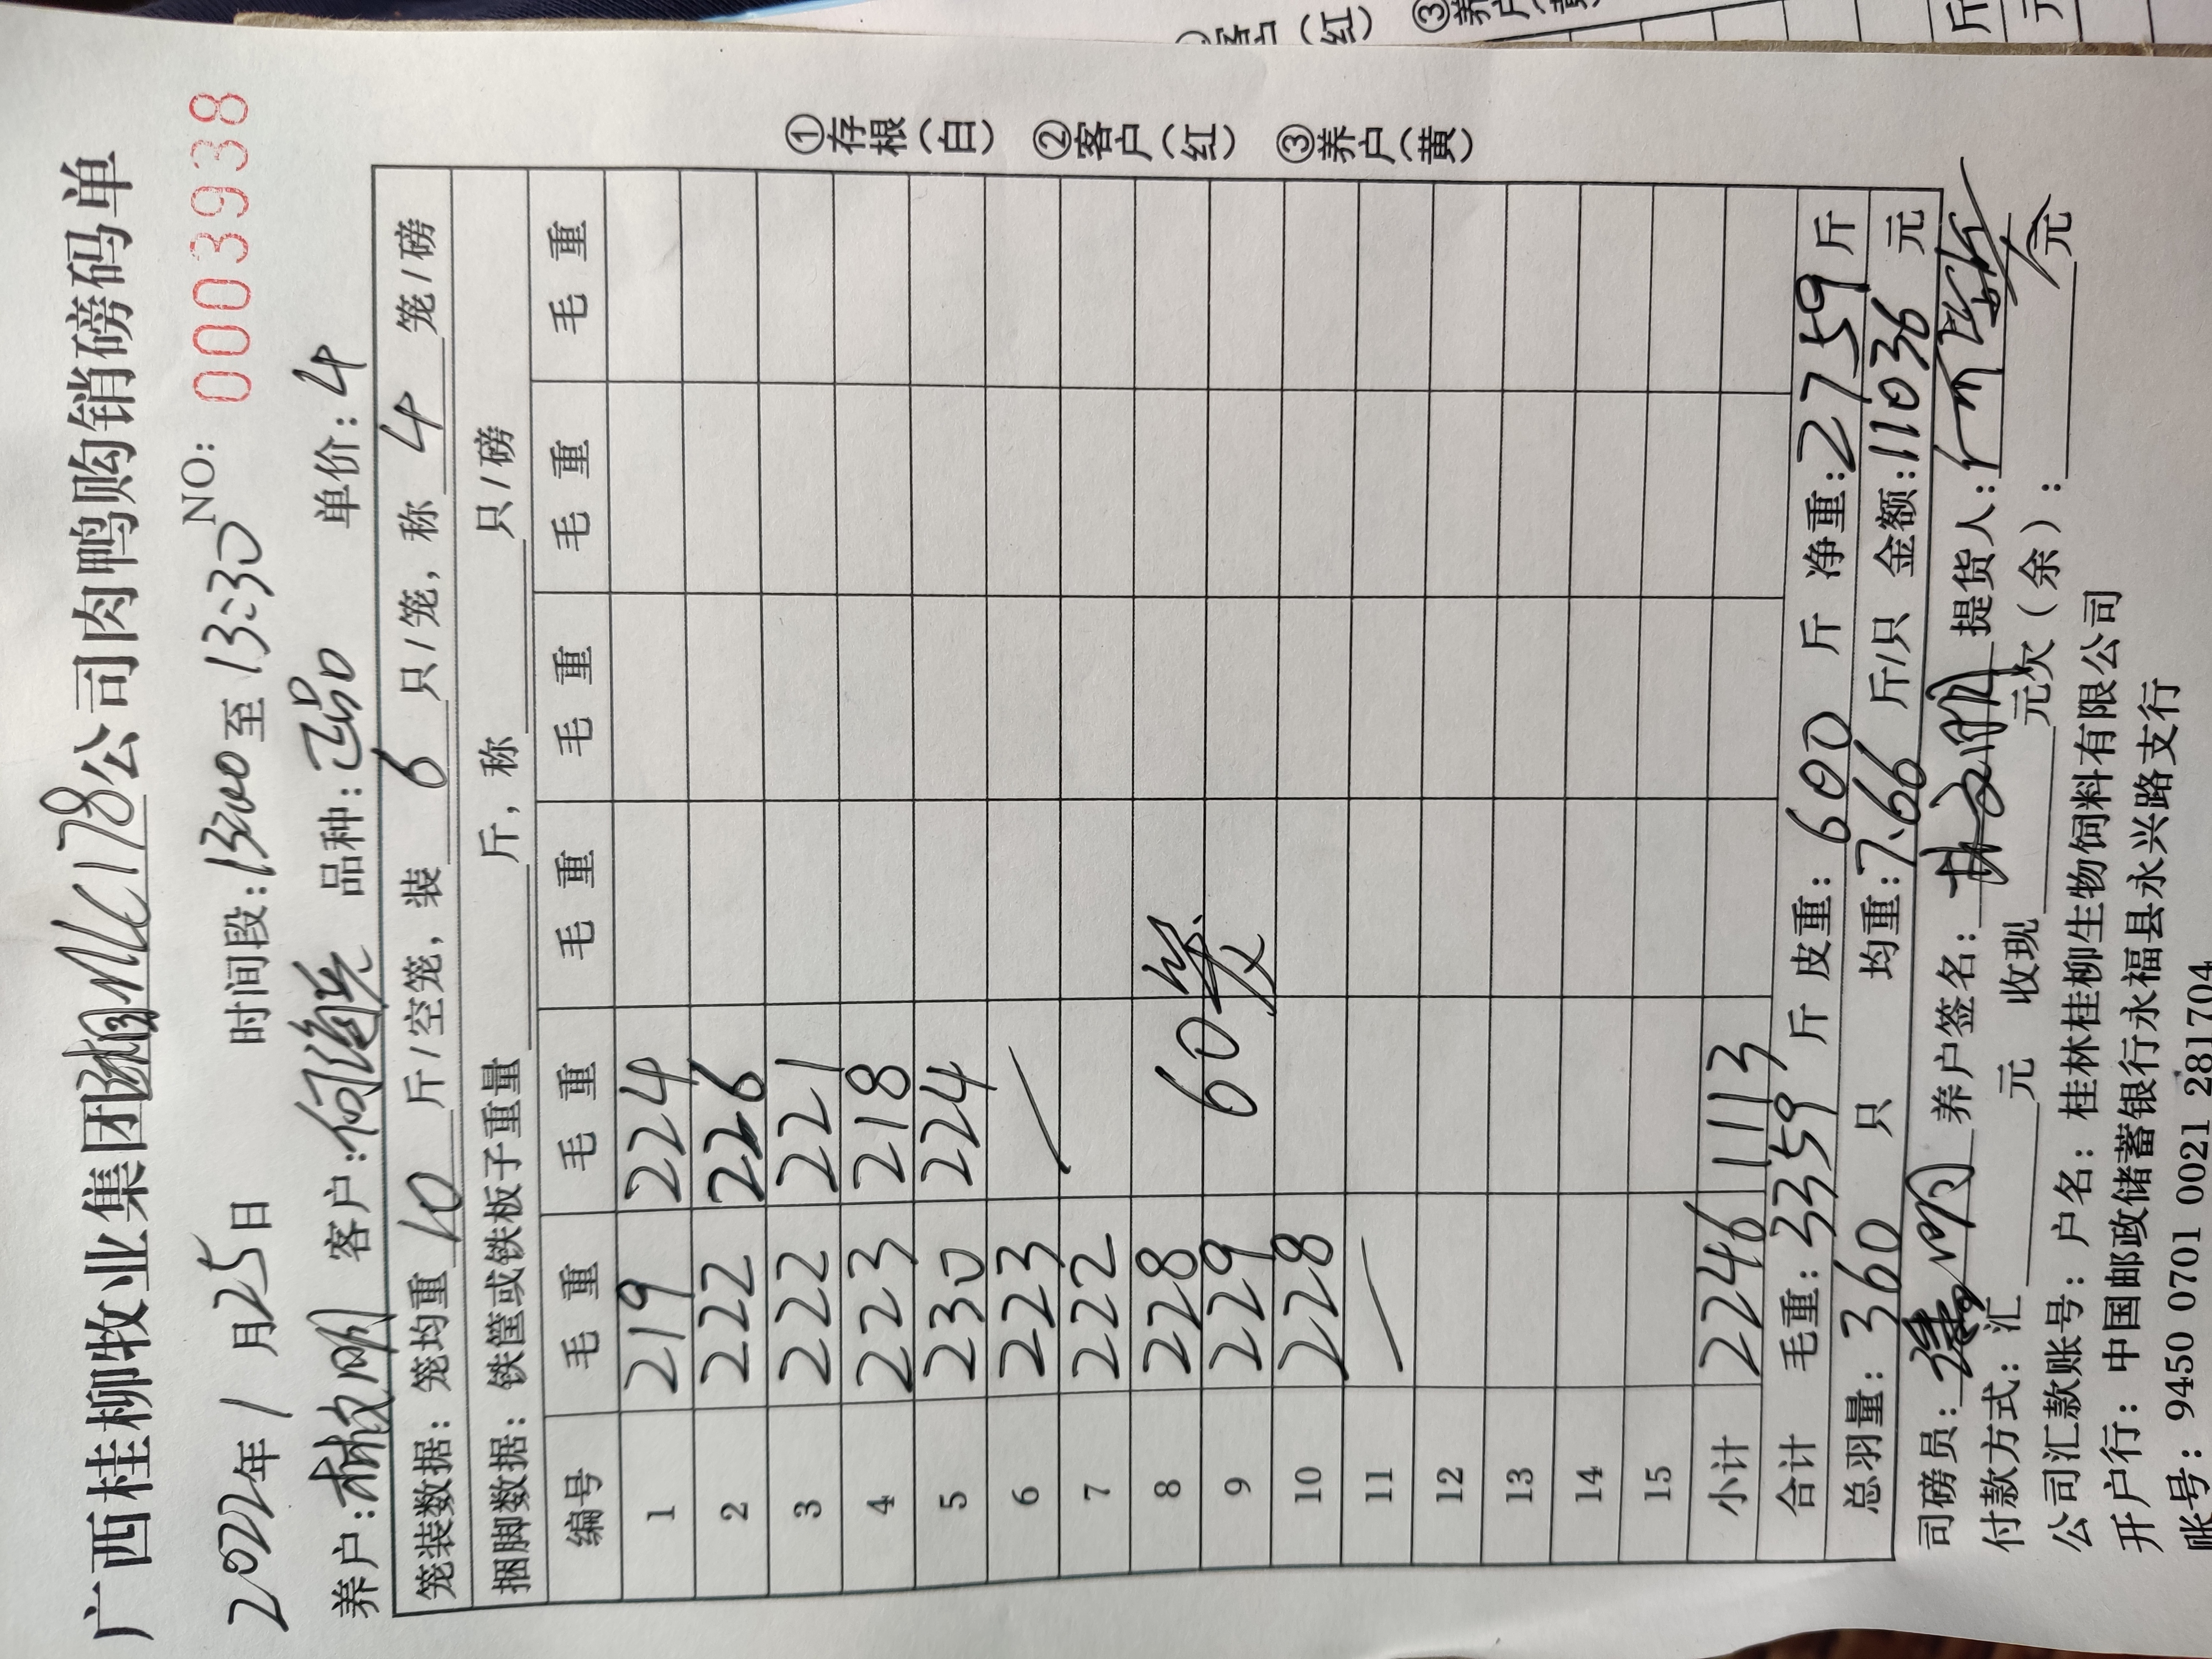 广西桂柳牧业集团 178公司肉鸭购销磅码单
2022年1月25日 时间段:13:00至13:30 NO: 0003938
养户: 客户:何 品种:正品 单价:4
笼装数据:笼均重 10 斤/空笼,装 6 只/笼,称 4 笼/磅
捆脚数据:铁筐或铁板子重量 斤,称 只/磅
编号 毛重 毛重 毛重 毛重 毛重 毛重
1 219 224
2 222 226
3 222 221
4 223 218
5 230 224
6 223
7 222
8 228
9 229 60笼
10 228
11
12
13
14
15
小计 2246 1113
合计 毛重:3359 斤 皮重:600 斤 净重:2759 斤
总羽量:360 只 均重:7.66 斤/只 金额:11036 元
司磅员: 养户签名: 提货人:
付款方式:汇 元 收现 元欠(余): 元
公司汇款账号:户名:桂林桂柳生物饲料有限公司
开户行:中国邮政储蓄银行永福县永兴路支行
账号:9450 0701 0021 281704
①存根(白) ②客户(红) ③养户(黄)
客户(红) ③养户(黄)
斤
元